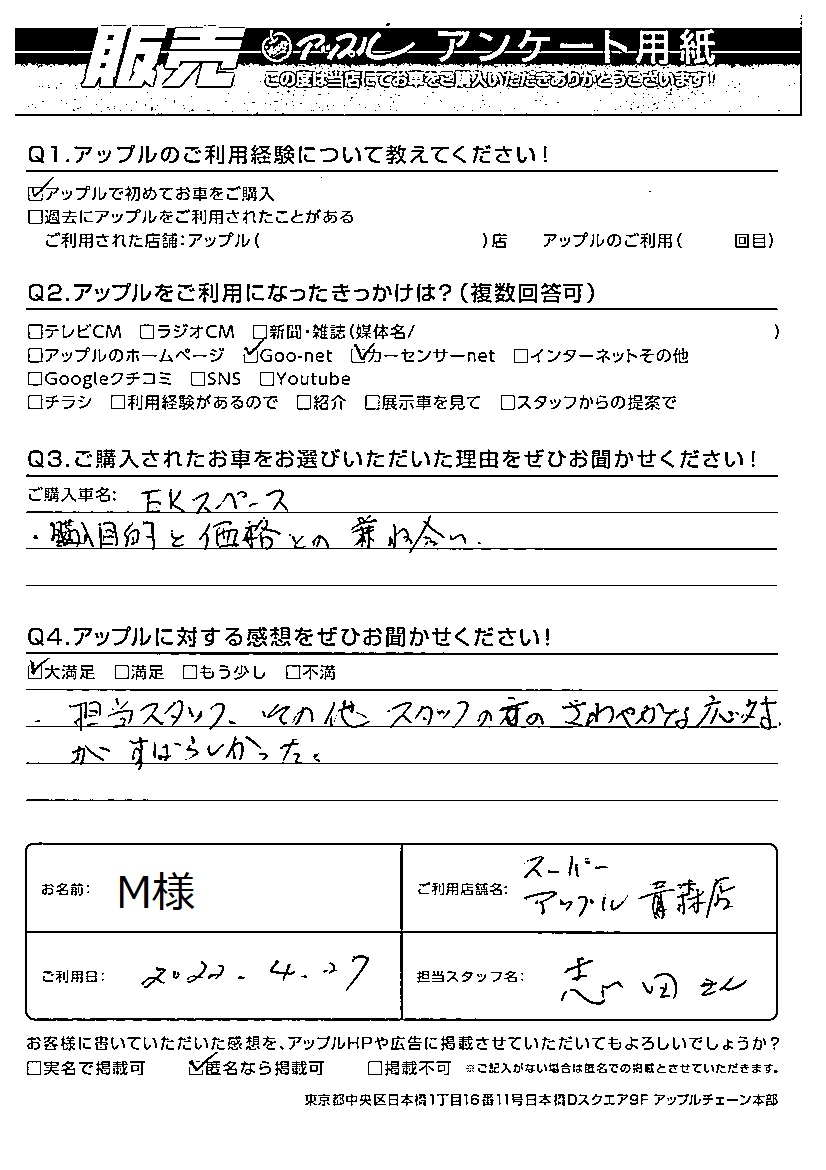 販売 アップル アンケート用紙
この度は当店にてお車をご購入いただきありがとうございます!
Q1.アップルのご利用経験について教えてください!
☑アップルで初めてお車をご購入
□過去にアップルをご利用されたことがある
ご利用された店舗:アップル( )店 アップルのご利用( 回目)
Q2.アップルをご利用になったきっかけは?(複数回答可)
□テレビCM □ラジオCM □新聞・雑誌(媒体名/ )
□アップルのホームページ ☑Goo-net ☑カーセンサーnet □インターネットその他
□Googleクチコミ □SNS □Youtube
□チラシ □利用経験があるので □紹介 □展示車を見て □スタッフからの提案で
Q3.ご購入されたお車をお選びいただいた理由をぜひお聞かせください!
ご購入車名: EKスペース
・購入目的と価格との兼ね合い.
Q4.アップルに対する感想をぜひお聞かせください!
☑大満足 □満足 □もう少し □不満
・担当スタッフ、その他スタッフの方のさわやかな応対
がすばらしかった。
お名前: M様
ご利用店舗名: スーパー
アップル青森店
ご利用日: 2022.4.27
担当スタッフ名: 志田さん
お客様に書いていただいた感想を、アップルHPや広告に掲載させていただいてもよろしいでしょうか?
□実名で掲載可 ☑匿名なら掲載可 □掲載不可 ※ご記入がない場合は匿名での掲載とさせていただきます。
東京都中央区日本橋1丁目16番11号日本橋Dスクエア9F アップルチェーン本部